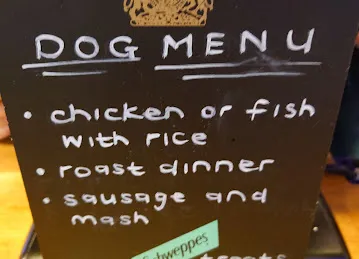 DOG MENU
• chicken or fish
with rice
• roast dinner
• sausage and
mash
Schweppes
treats